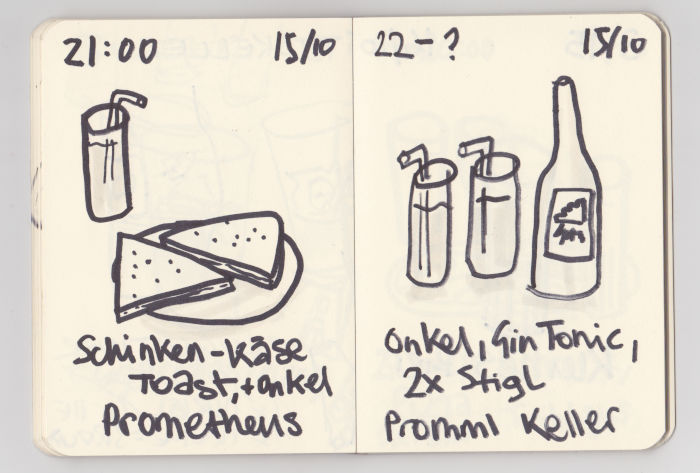 21:00 15/10
Schinken-Käse
Toast,+onkel
Prometheus
22-? 15/10
onkel, Gin Tonic,
2x Stigl
Promml Keller